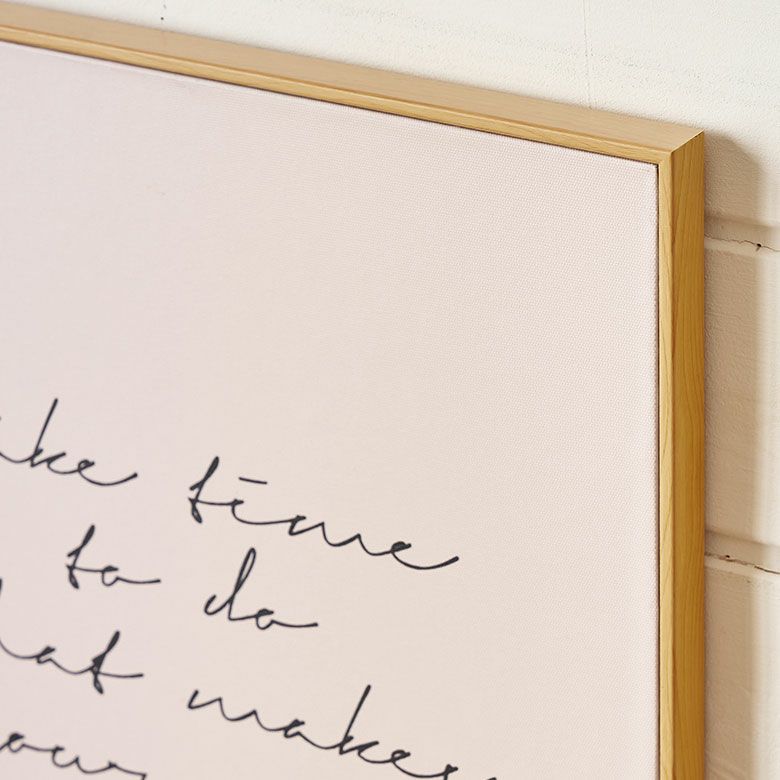 ake time
to do
hat makes
our